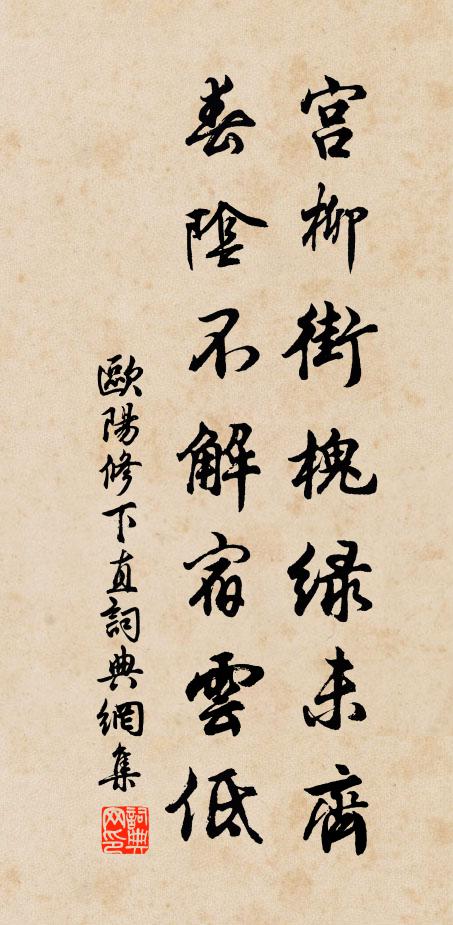 宮柳街槐綠未齊
春陰不解宿雲低
歐陽修下直詞典網集
詞典网印